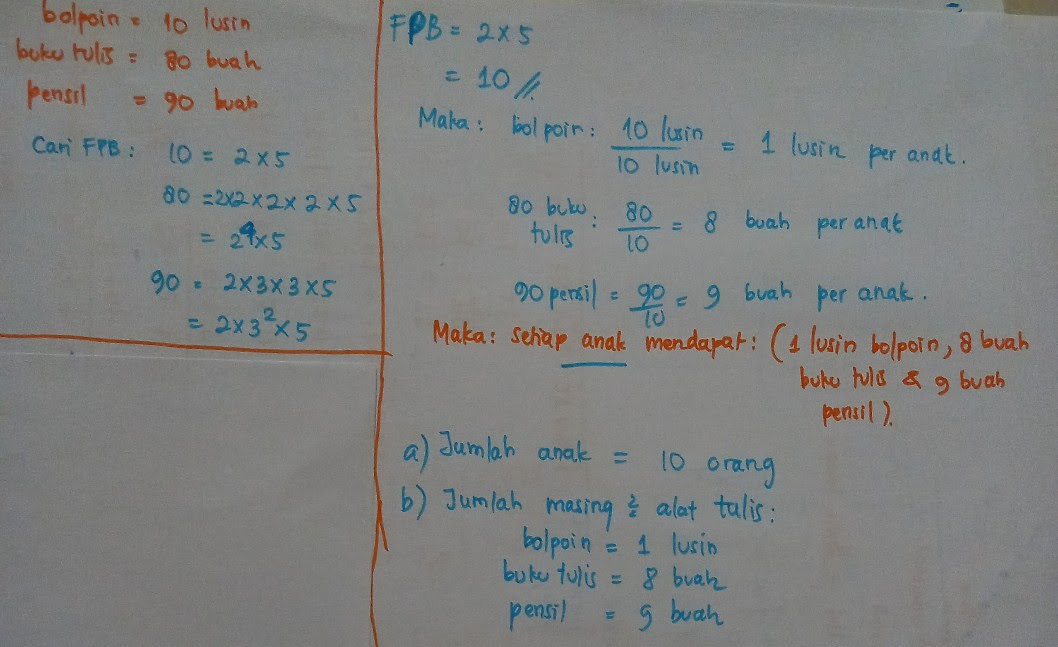 bolpoin = 10 lusin
buku tulis = 80 buah
pensil = 90 buah
Cari FPB : 10 = 2 x 5
80 = 2x2 x 2 x 2 x 5
= 2⁴x5
90 = 2x3x3x5
= 2x3²x5
FPB = 2 x 5
= 10 //.
Maka : bolpoin : 10 lusin / 10 lusin = 1 lusin per anak.
80 buku tulis : 80/10 = 8 buah per anak
90 pensil = 90/10 = 9 buah per anak.
Maka : setiap anak mendapat : (1 lusin bolpoin, 8 buah
buku tulis & 9 buah
pensil).
a) Jumlah anak = 10 orang
b) Jumlah masing² alat tulis :
bolpoin = 1 lusin
buku tulis = 8 buah
pensil = 9 buah